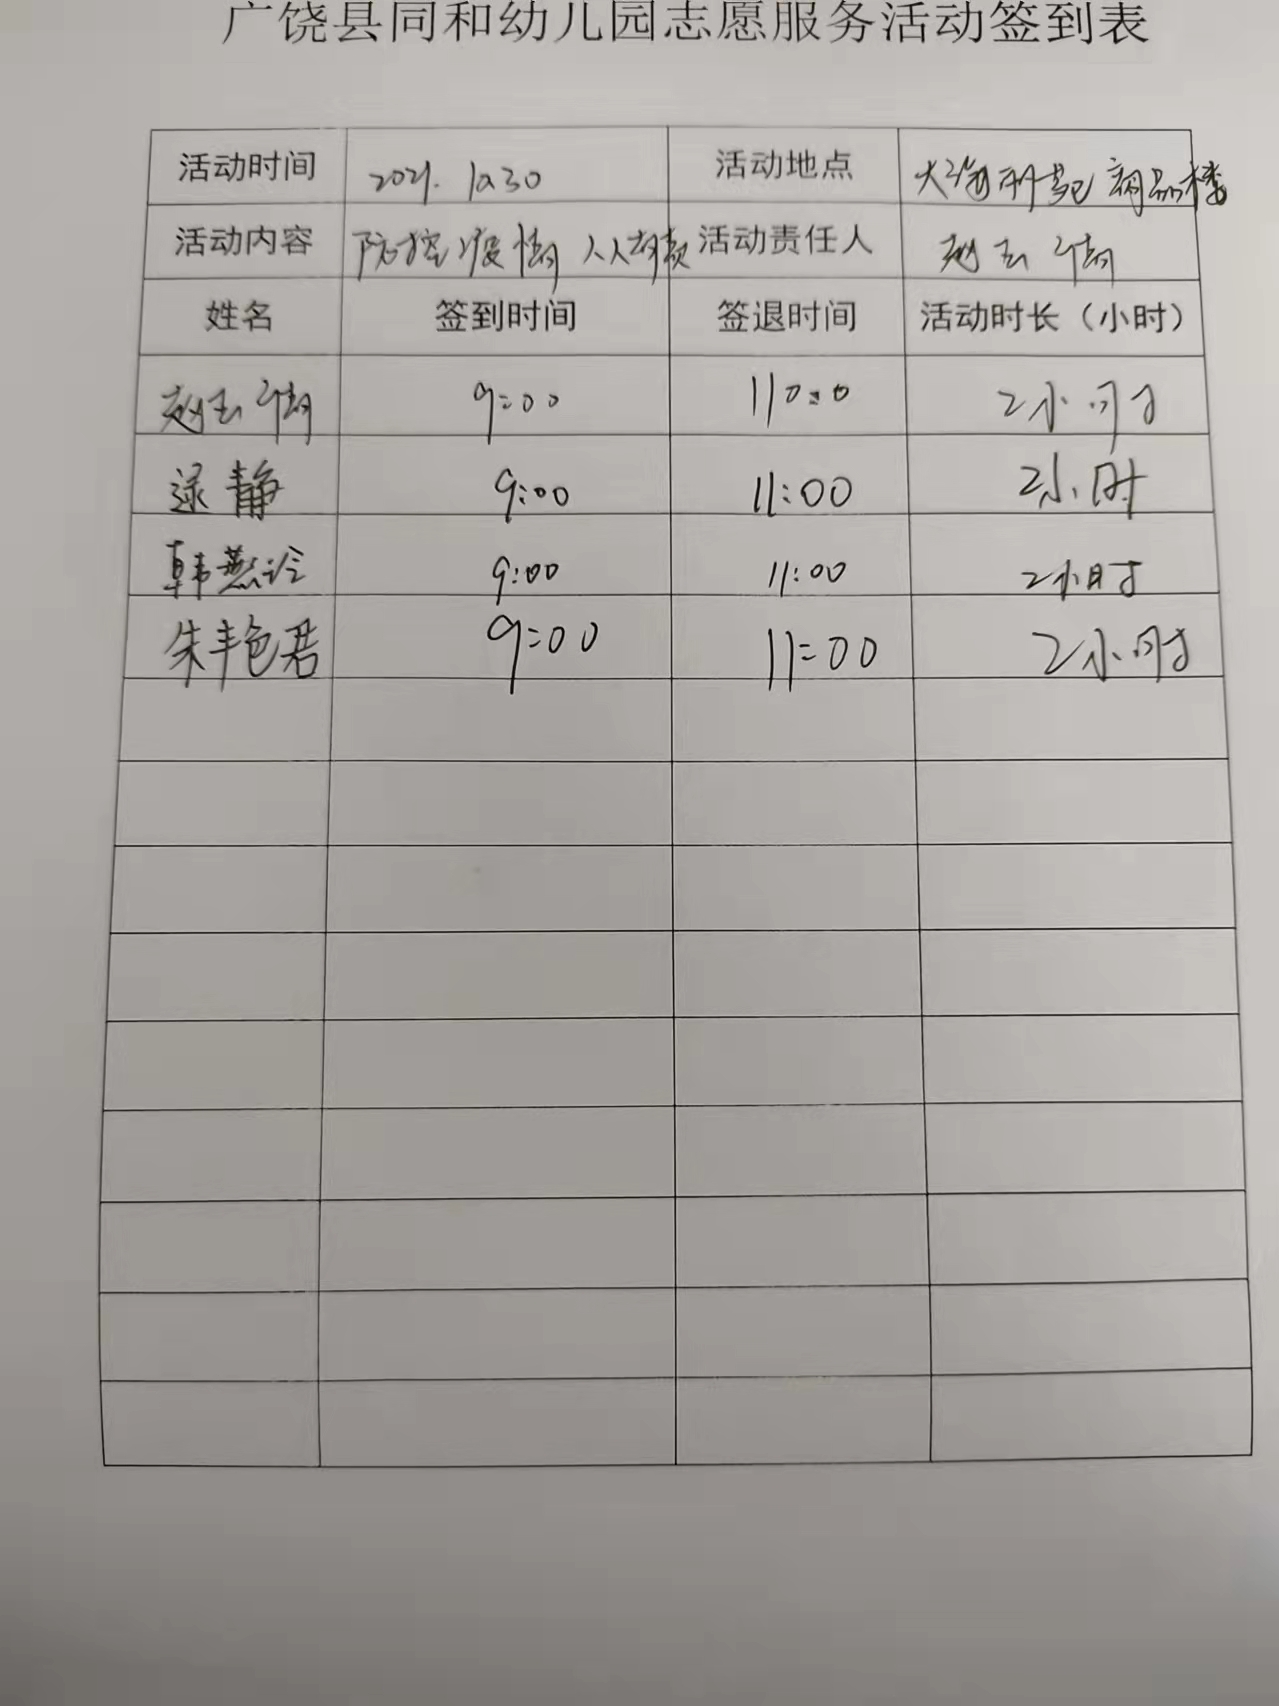 广饶县同和幼儿园志愿服务活动签到表
活动时间 2021.10.30 活动地点 大海 苑 商品楼
活动内容 防控疫情 人人有责 活动责任人 赵玉倩
姓名 签到时间 签退时间 活动时长（小时）
赵玉倩 9:00 11:00 2小时
逯静 9:00 11:00 2小时
韩燕玲 9:00 11:00 2小时
朱丰艳君 9:00 11:00 2小时